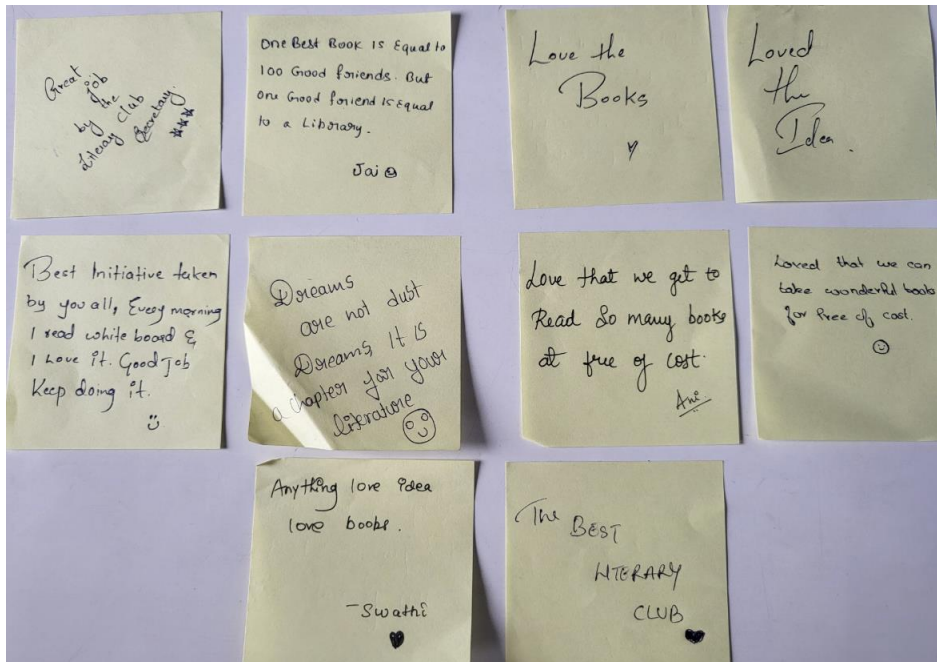 Great
job
by the
Literary Club
Secretary.
One Best Book is Equal to
100 Good friends. But
one Good friend is Equal
to a Library.
Jai
Love the
Books
Loved
the
Idea.
Best Initiative taken
by you all, Every morning
I read white board &
I Love it. Good Job
Keep doing it.
Dreams
are not dust
Dreams, It is
a chapter for your
literature
Love that we get to
Read So many books
at free of cost.
Ani
Loved that we can
take wonderful books
for free of cost.
Anything love idea
love books.
-Swathi
The
BEST
LITERARY
CLUB